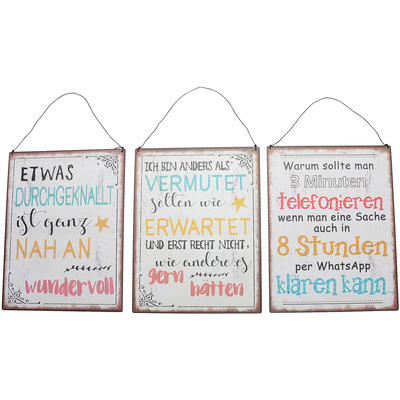 ETWAS
DURCHGEKNALLT
ist ganz
NAH AN
wundervoll
ICH BIN ANDERS ALS
VERMUTET
selten wie
ERWARTET
UND ERST RECHT NICHT,
wie andere es
gern
hätten
Warum sollte man
3 Minuten
telefonieren
wenn man eine Sache
auch in
8 Stunden
per WhatsApp
klären kann...